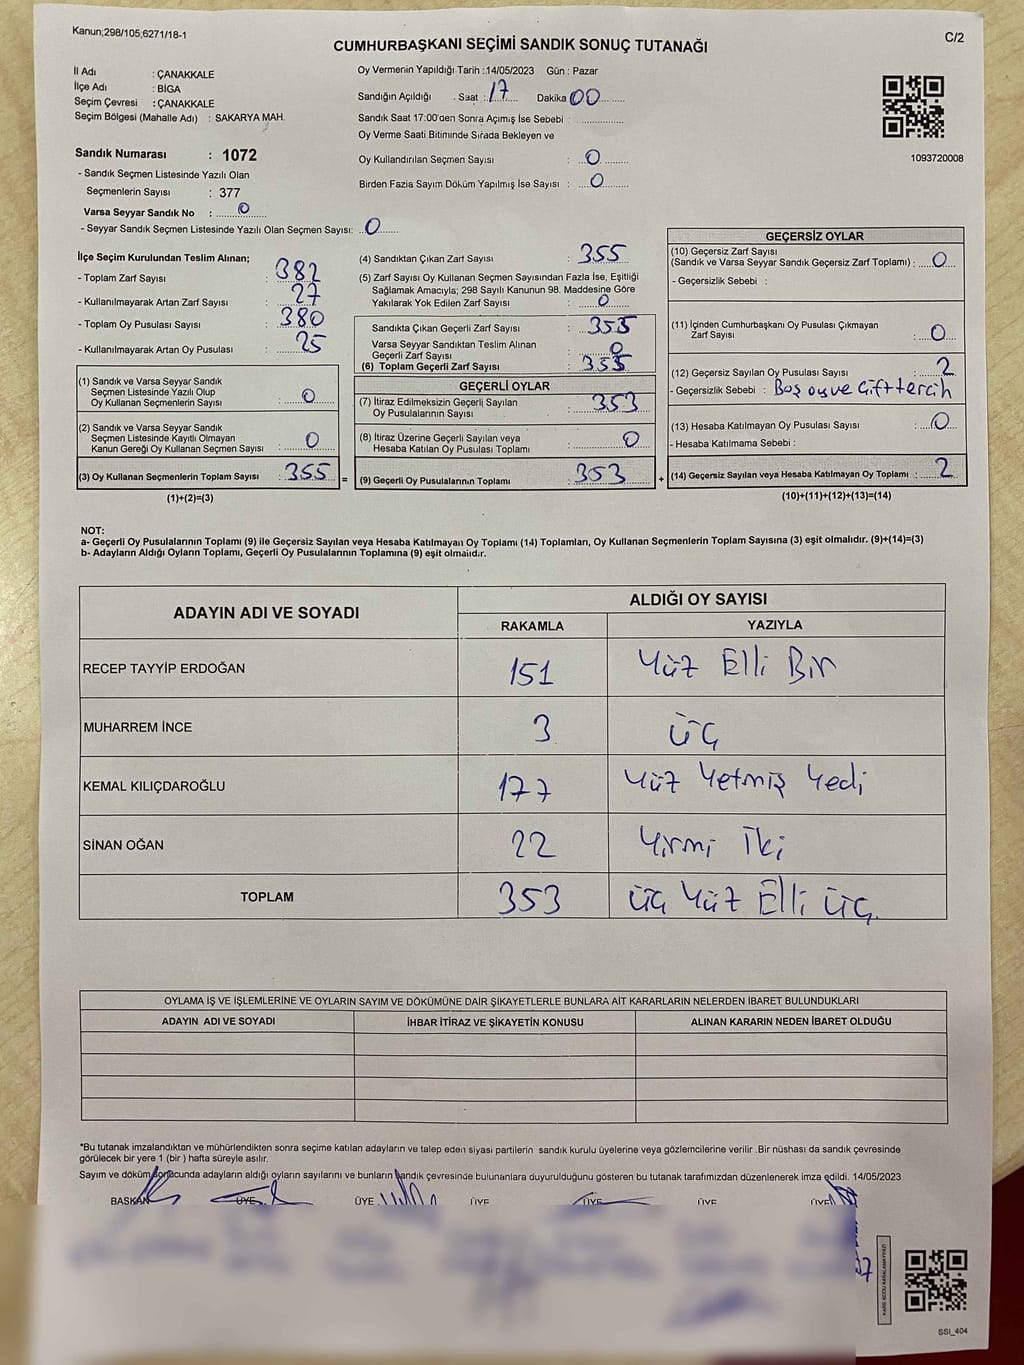 Kanun;298/105;6271/18-1
C/2
CUMHURBAŞKANI SEÇİMİ SANDIK SONUÇ TUTANAĞI
İl Adı : ÇANAKKALE
İlçe Adı : BİGA
Seçim Çevresi : ÇANAKKALE
Seçim Bölgesi (Mahalle Adı) : SAKARYA MAH.
Sandık Numarası : 1072
- Sandık Seçmen Listesinde Yazılı Olan
Seçmenlerin Sayısı : 377
Varsa Seyyar Sandık No : 0
- Seyyar Sandık Seçmen Listesinde Yazılı Olan Seçmen Sayısı: 0
Oy Vermenin Yapıldığı Tarih :14/05/2023 Gün : Pazar
Sandığın Açıldığı . Saat : 17 Dakika 00
Sandık Saat 17:00'den Sonra Açımış İse Sebebi :
Oy Verme Saati Bitiminde Sırada Bekleyen ve
Oy Kullandırılan Seçmen Sayısı : 0
Birden Fazla Sayım Döküm Yapılmış İse Sayısı : 0
1093720008
İlçe Seçim Kurulundan Teslim Alınan;
- Toplam Zarf Sayısı : 382
- Kullanılmayarak Artan Zarf Sayısı : 27
- Toplam Oy Pusulası Sayısı : 380
- Kullanılmayarak Artan Oy Pusulası : 25
(1) Sandık ve Varsa Seyyar Sandık
Seçmen Listesinde Yazılı Olup
Oy Kullanan Seçmenlerin Sayısı : 0
(2) Sandık ve Varsa Seyyar Sandık
Seçmen Listesinde Kayıtlı Olmayan
Kanun Gereği Oy Kullanan Seçmen Sayısı : 0
(3) Oy Kullanan Seçmenlerin Toplam Sayısı : 355 =
(1)+(2)=(3)
(4) Sandıktan Çıkan Zarf Sayısı : 355
(5) Zarf Sayısı Oy Kullanan Seçmen Sayısından Fazla İse, Eşitliği
Sağlamak Amacıyla; 298 Sayılı Kanunun 98. Maddesine Göre
Yakılarak Yok Edilen Zarf Sayısı : 0
Sandıkta Çıkan Geçerli Zarf Sayısı : 355
Varsa Seyyar Sandıktan Teslim Alınan
Geçerli Zarf Sayısı : 0
(6) Toplam Geçerli Zarf Sayısı : 355
GEÇERLİ OYLAR
(7) İtiraz Edilmeksizin Geçerli Sayılan
Oy Pusulalarının Sayısı : 353
(8) İtiraz Üzerine Geçerli Sayılan veya
Hesaba Katılan Oy Pusulası Toplamı : 0
(9) Geçerli Oy Pusulalarının Toplamı : 353 +
GEÇERSİZ OYLAR
(10) Geçersiz Zarf Sayısı
(Sandık ve Varsa Seyyar Sandık Geçersiz Zarf Toplamı) : 0
- Geçersizlik Sebebi :
(11) İçinden Cumhurbaşkanı Oy Pusulası Çıkmayan
Zarf Sayısı : 0
(12) Geçersiz Sayılan Oy Pusulası Sayısı : 2
- Geçersizlik Sebebi : Boş oy ve Çift tercih
(13) Hesaba Katılmayan Oy Pusulası Sayısı : 0
- Hesaba Katılmama Sebebi :
(14) Geçersiz Sayılan veya Hesaba Katılmayan Oy Toplamı : 2
(10)+(11)+(12)+(13)=(14)
NOT:
a- Geçerli Oy Pusulalarının Toplamı (9) ile Geçersiz Sayılan veya Hesaba Katılmayan Oy Toplamı (14) Toplamları, Oy Kullanan Seçmenlerin Toplam Sayısına (3) eşit olmalıdır. (9)+(14)=(3)
b- Adayların Aldığı Oyların Toplamı, Geçerli Oy Pusulalarının Toplamına (9) eşit olmalıdır.
ADAYIN ADI VE SOYADI ALDIĞI OY SAYISI
RAKAMLA YAZIYLA
RECEP TAYYİP ERDOĞAN 151 Yüz Elli Bir
MUHARREM İNCE 3 Üç
KEMAL KILIÇDAROĞLU 177 Yüz Yetmiş Yedi
SİNAN OĞAN 22 Yirmi İki
TOPLAM 353 Üç Yüz Elli Üç.
OYLAMA İŞ VE İŞLEMLERİNE VE OYLARIN SAYIM VE DÖKÜMÜNE DAİR ŞİKAYETLERLE BUNLARA AİT KARARLARIN NELERDEN İBARET BULUNDUKLARI
ADAYIN ADI VE SOYADI İHBAR İTİRAZ VE ŞİKAYETİN KONUSU ALINAN KARARIN NEDEN İBARET OLDUĞU
*Bu tutanak imzalandıktan ve mühürlendikten sonra seçime katılan adayların ve talep eden siyasi partilerin sandık kurulu üyelerine veya gözlemcilerine verilir .Bir nüshası da sandık çevresinde
görülecek bir yere 1 (bir ) hafta süreyle asılır.
Sayım ve döküm sonucunda adayların aldığı oyların sayılarını ve bunların sandık çevresinde bulunanlara duyurulduğunu gösteren bu tutanak tarafımızdan düzenlenerek imza edildi. 14/05/2023
BAŞKAN ÜYE ÜYE ÜYE ÜYE ÜYE ÜYE
SSI_404